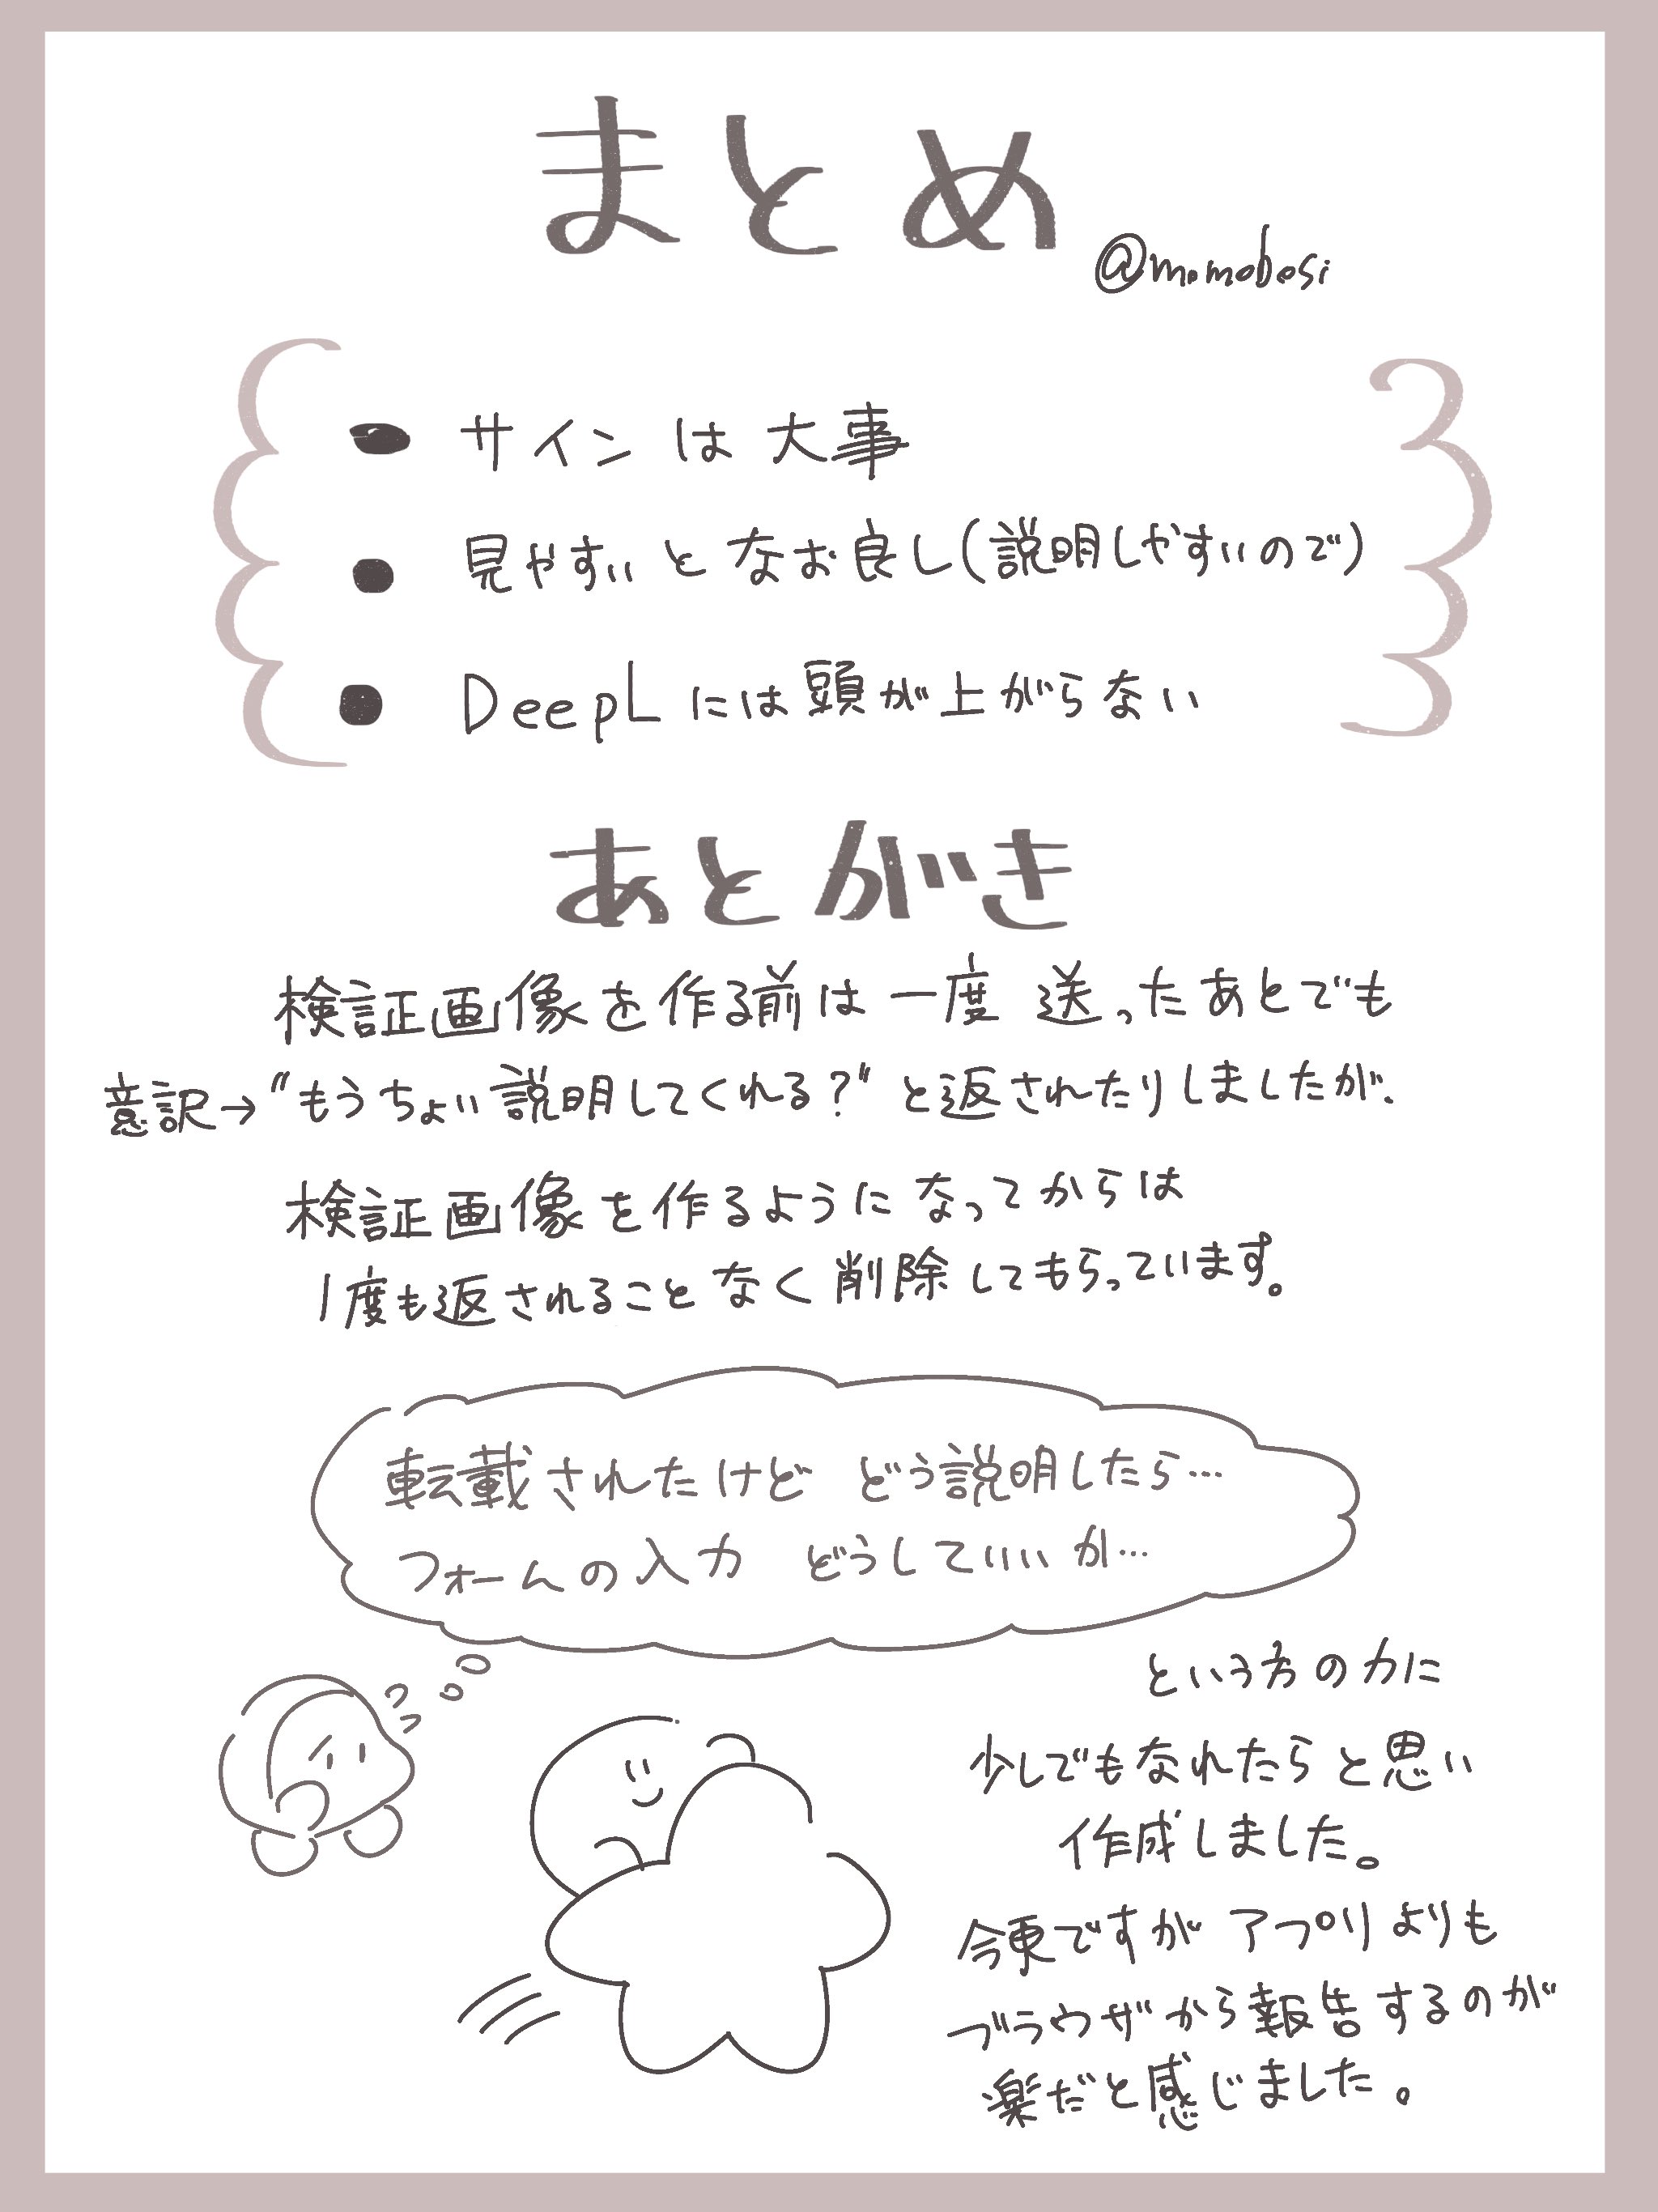 まとめ
@momobosi
・サインは大事
・見やすいとなお良し(説明しやすいので)
・DeepLには頭が上がらない
あとがき
検証画像を作る前は一度送ったあとでも
意訳→"もうちょい説明してくれる?"と返されたりしましたが、
検証画像を作るようになってからは
1度も返されることなく削除してもらっています。
転載されたけど どう説明したら…
フォームの入力 どうしていいか…
という方の力に
少しでもなれたらと思い
作成しました。
今更ですがアプリよりも
ブラウザから報告するのが
楽だと感じました。